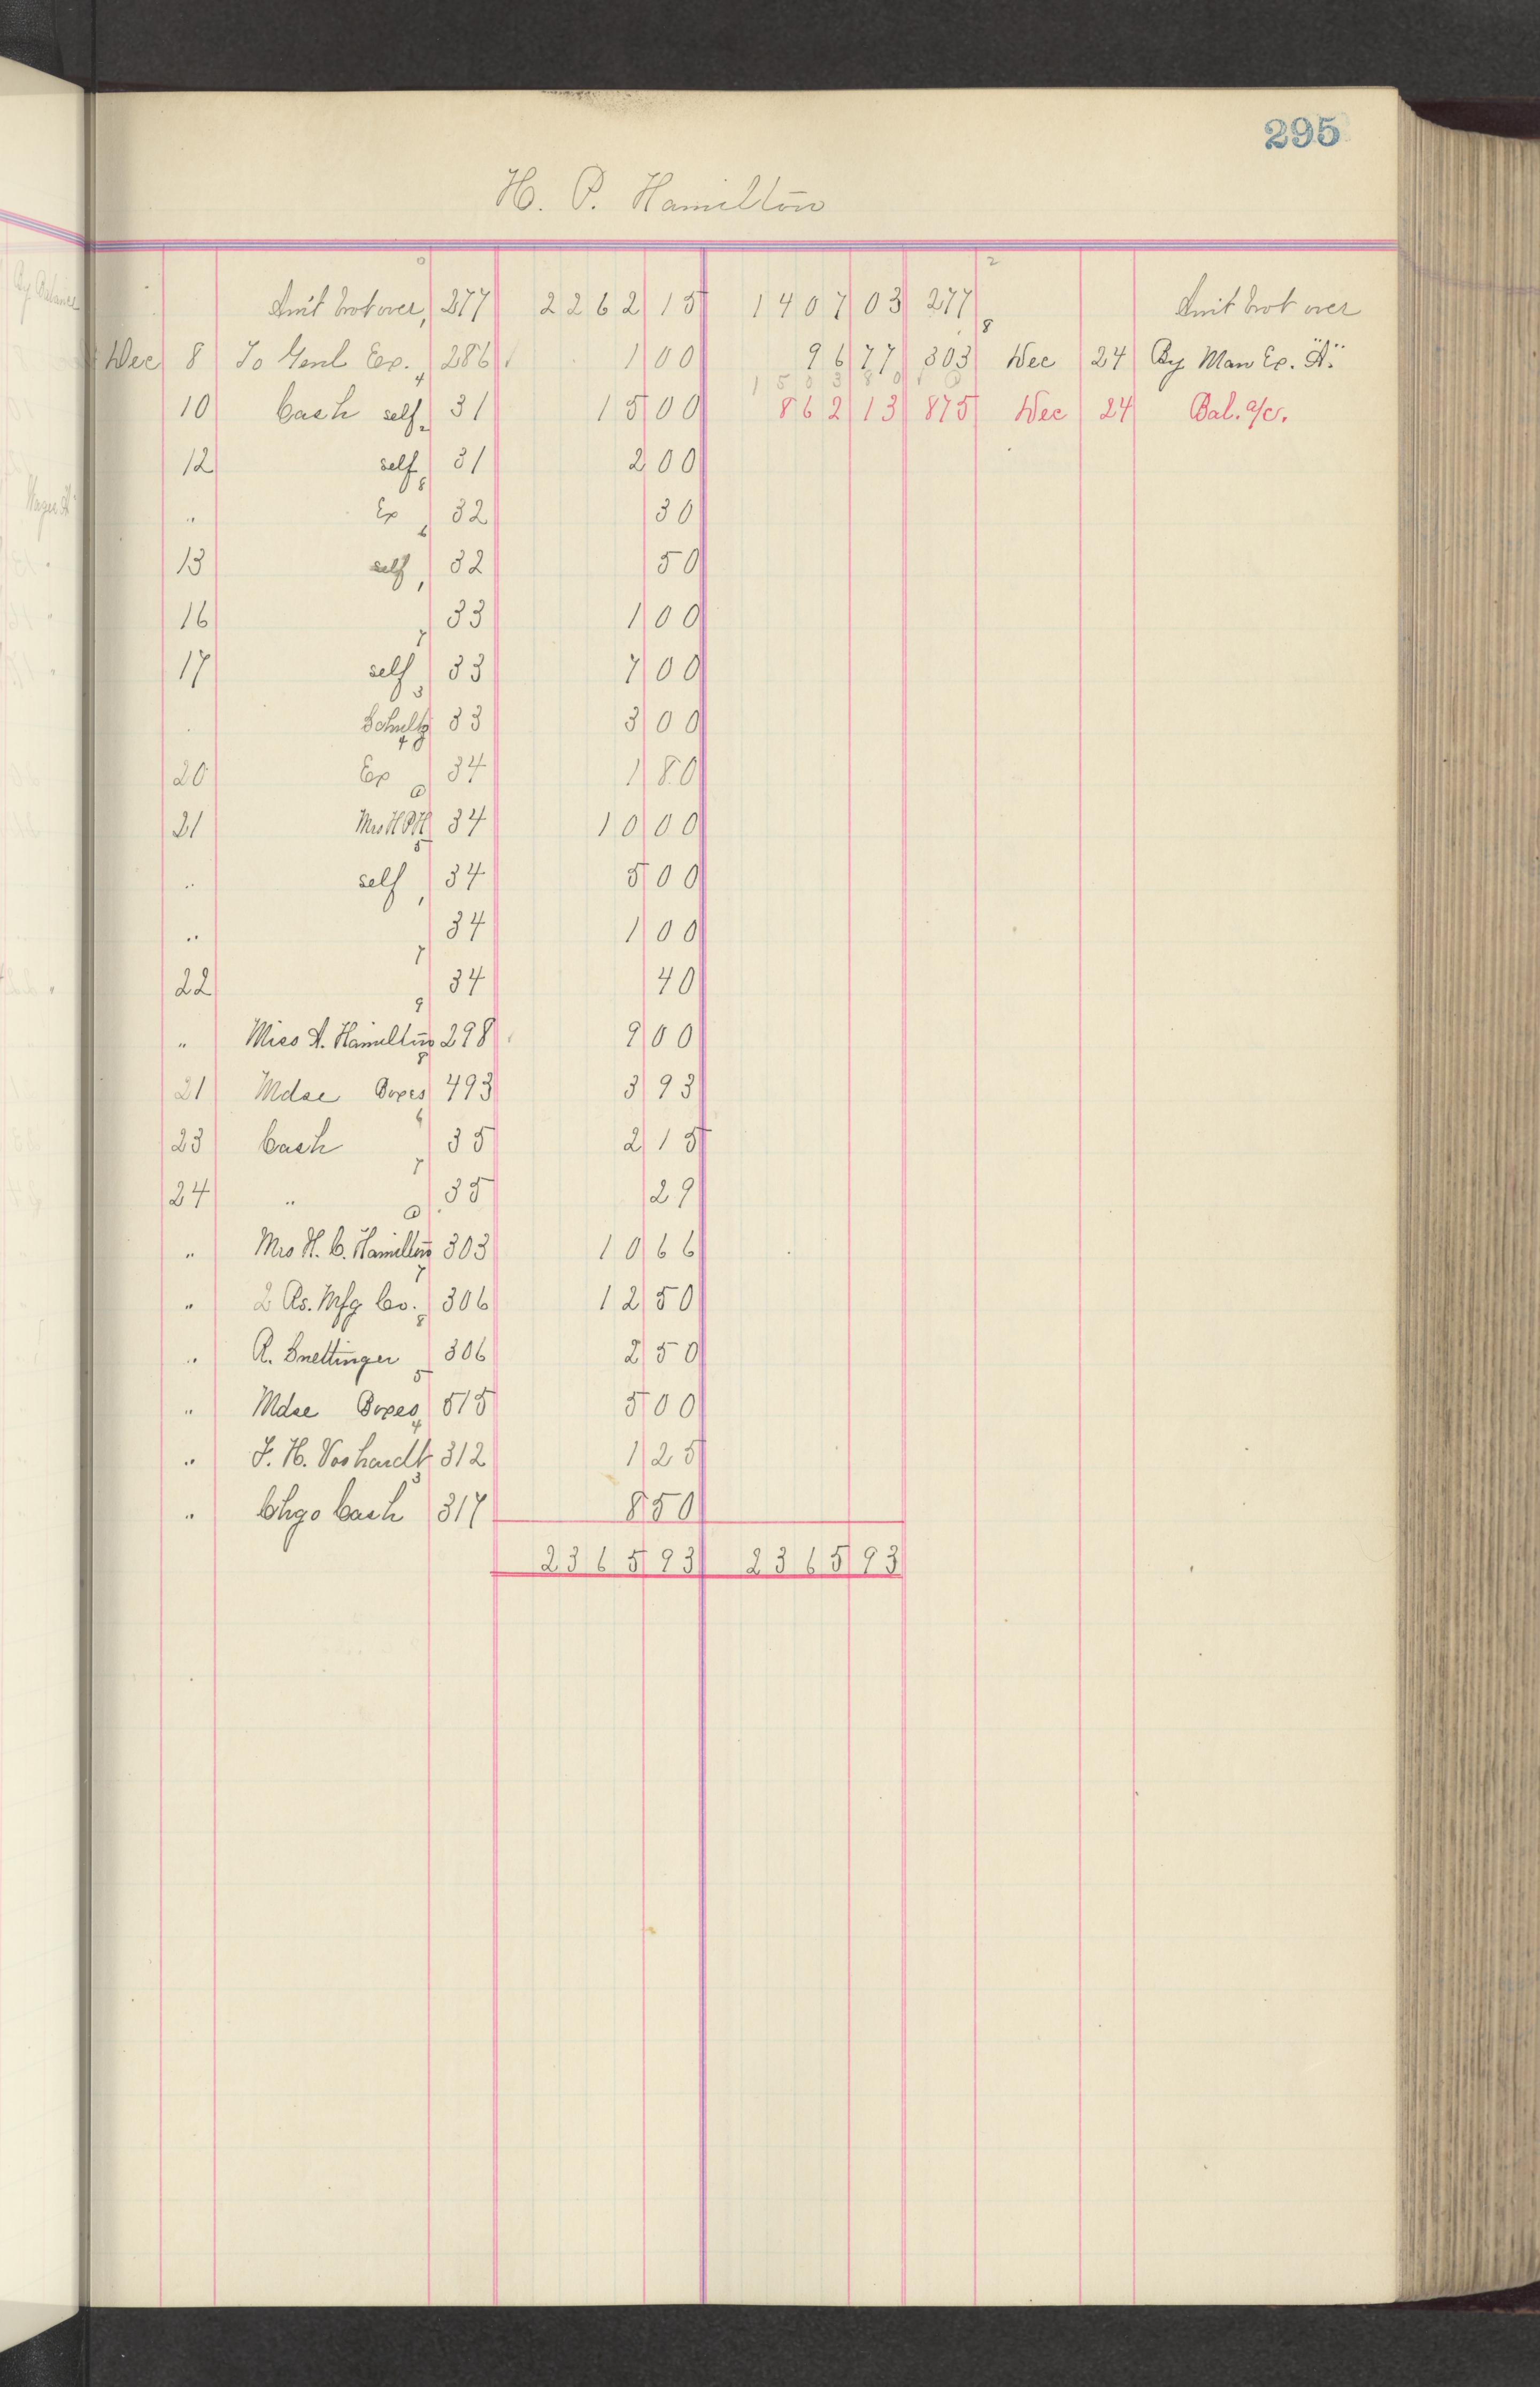 295
H. P. Hamilton
Amt brot over, 277 2262 15 1407 03 277 Amt brot over
Dec 8 To Genl Ex. 286 1 00 96 77 303 Dec 24 By Man Ex. "A"
1503 80
10 Cash self 31 15 00 862 13 875 Dec 24 Bal. a/c.
12 self 31 2 00
" Ex 32 30
13 self 32 50
16 33 1 00
17 self 33 7 00
Schultz 33 3 00
20 Ex 34 1 80
21 Mrs HPH 34 10 00
" self 34 5 00
" 34 1 00
22 34 40
" Miss A. Hamilton 298 9 00
21 Mdse Boxes 493 3 93
23 Cash 35 2 15
24 " 35 29
" Mrs H. C. Hamilton 303 10 66
" 2 Rs. Mfg Co. 306 12 50
" R. Snettinger 306 2 50
" Mdse Boxes 515 5 00
" J. H. Voshardt 312 1 25
" Chgo Cash 317 8 50
2365 93 2365 93